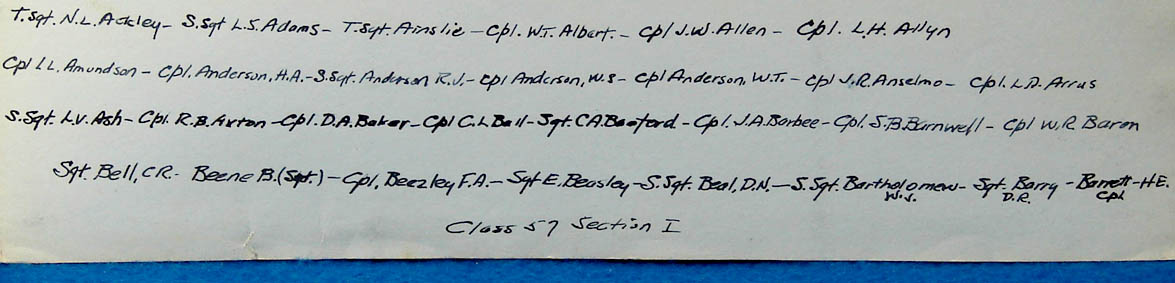 T.Sgt. N.L. Ackley - S.Sgt L.S. Adams - T.Sgt. Ainslie - Cpl. W.T. Albert. - Cpl J.W. Allen - Cpl. L.H. Allyn
Cpl L.L. Amundson - Cpl. Anderson, H.A. - S.Sgt. Anderson R.J. - Cpl Anderson, W.S - Cpl Anderson, W.T. - Cpl J.R. Anselmo - Cpl. L.D. Arrus
S.Sgt. L.V. Ash - Cpl. R.B. Axton - Cpl. D.A. Baker - Cpl C.L Ball - Sgt. C.A. - Cpl. J.A. Barbee - Cpl. S.B. Barnwell - Cpl W.R. Baron
Sgt. Bell, C.R. - Beene B. (Sgt.) - Cpl, Beezley F.A. - Sgt E. Beasley - S.Sgt. Beal, D.N. - S.Sgt. Bartholomew - Sgt. Barry - Barrett - H.E.
W.J. D.R. Cpl
Class 57 Section I